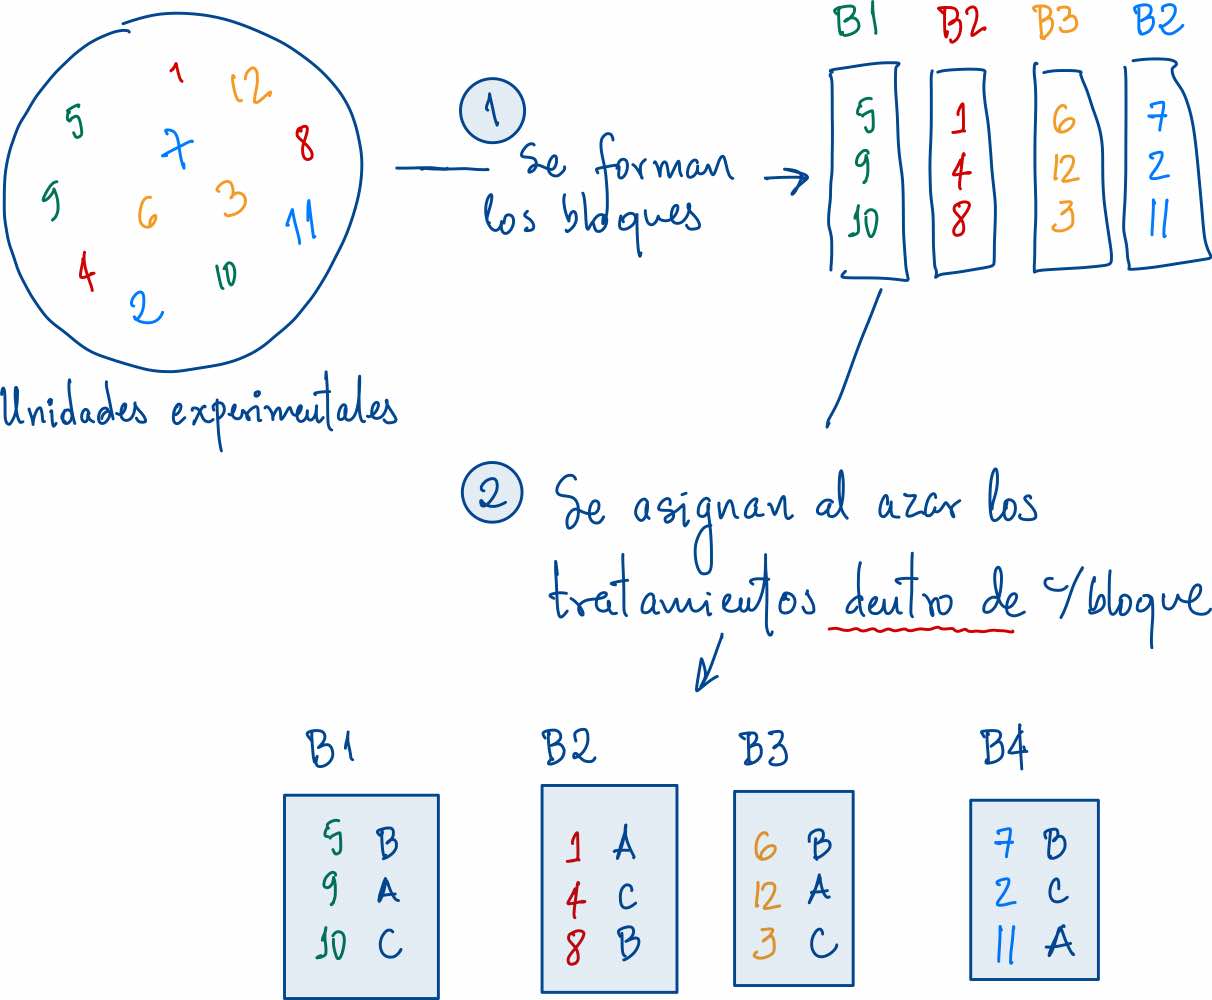 1 12
5 7 8
9 6 3 11
4 10
2
Unidades experimentales
1
Se forman
los bloques
B1 B2 B3 B2
5 1 6 7
9 4 12 2
10 8 3 11
2 Se asignan al azar los
tratamientos dentro de c/bloque
B1 B2 B3 B4
5 B 1 A 6 B 7 B
9 A 4 C 12 A 2 C
10 C 8 B 3 C 11 A